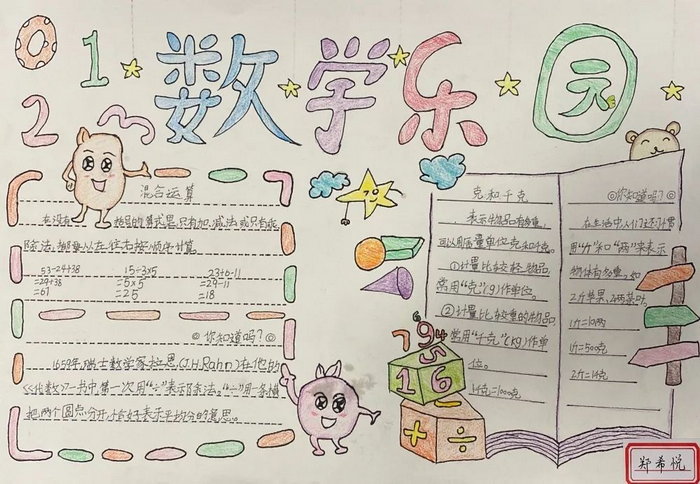 0 1 2 3
数学乐园
混合运算
在没有括号的算式里,只有加、减法或只有乘、
除法,都要从左往右按顺序计算。
53-24+38 15÷3×5 23+6-11
=29+38 =5×5 =29-11
=67 =25 =18
◎你知道吗?◎
1659年,瑞士数学家拉恩(J.H.Rahn)在他的
《代数》一书中,第一次用“÷”表示除法。“÷”用一条横线
把两个圆点分开,恰好表示平均分的意思。
克和千克
表示物品有多重,
可以用质量单位克和千克。
①计量比较轻的物品,
常用“克”(g)作单位。
②计量比较重的物品,
常用“千克”(kg)作单
位。
1千克=1000克
◎你知道吗?◎
在生活中,人们还计费
用“斤”和“两”来表示
物体有多重,如
2斤苹果、2两茶叶。
1斤=10两
1斤=500克
2斤=1千克
7 6 9
5
1 6
+ ÷
郑希悦